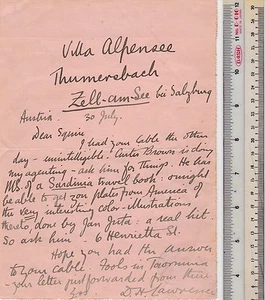 Villa Alpensee
Thumersbach
Zell-am-See bei Salzburg
Austria. 30 July.
Dear Squire
I had your cable the other
day - unintelligible. Curtis Brown is doing
my agenting - ask him for things. He has
MS. of a Sardinia travel book: ought
be able to get you plates from America of
the very interesting color-illustrations
thereto, done by Jan Juta: a real hit.
So ask him - 6 Henrietta St.
Hope you had the answer
to your cable. Fools in Taormina
- your letter just forwarded from there
D. H. Lawrence